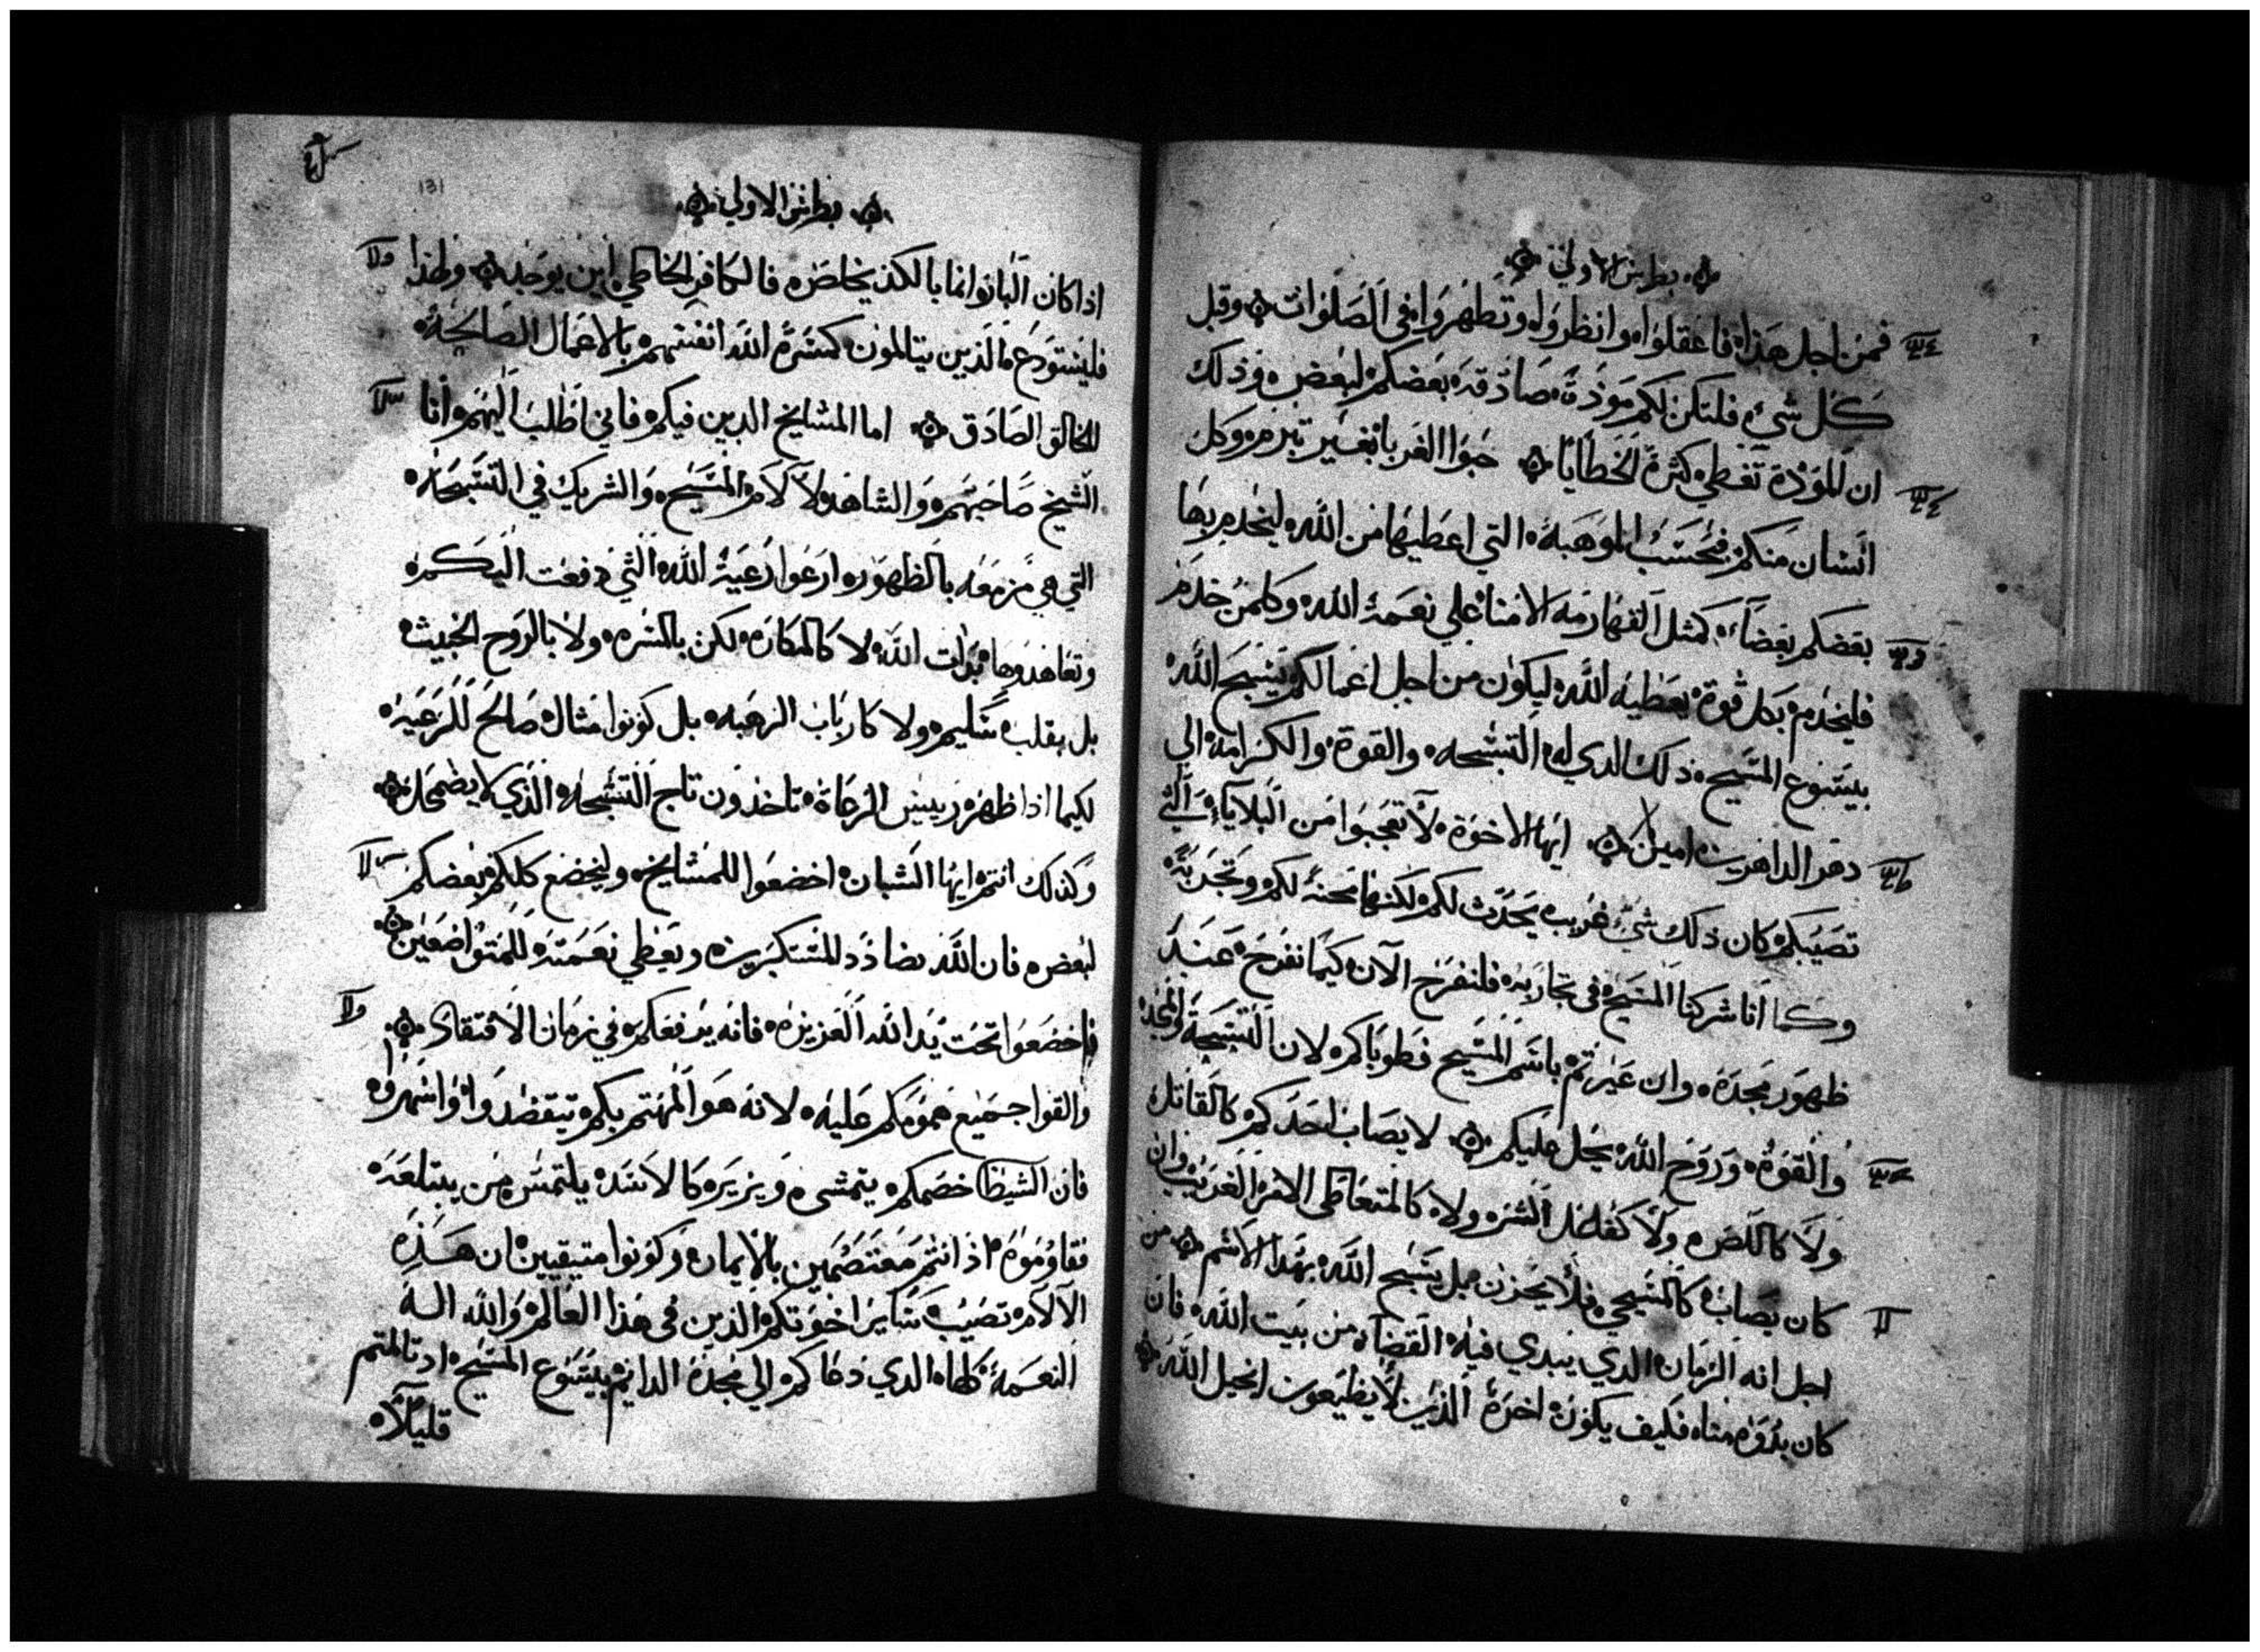 بطرس الاولي
فمن اجل هذا فاعقلوا وانظروا وتطهروا في الصلوات وقبل
كل شي فلتكن لكم موذة صادقه بعضكم لبعض وذلك
ان المودة تغطي كثرة الخطايا حبوا الغربا بغير تبرم وكل
انسان منكم فبحسب الموهبة التي اعطيها من الله ليخدم بها
بعضكم بعضا كمثل القهارمه الامنا علي نعمة الله وكلمن خدم
فليخدم بكل قوة يعطيه الله ليكون من اجل اعمالكم يسبح الله
بيسوع المسيح ذلك الدي له التسبحه والقوة والكرامة الي
دهر الداهرين امين ايها الاخوة لا تعجبوا من البلايا التي
تصيبكم كان ذلك شي غريب يحدث لكم لكنها محنة لكم وتجربة
وكما انا شركنا المسيح في تجاربه فلنفرح الآن كيما نفرح عند
ظهور مجده وان عيرتم باسم المسيح فطوباكم لان التسبحة والمجد
والقوة وروح الله يحل عليكم لا يصاب احدكم كالقاتل
ولا كاللص ولا كفاعل الشر ولا كالمتعاطي الامر الغريب وان
كان يصاب كالمسيحي فلا يحزن بل يسبح الله بهدا الاسم من
اجل انه الزمان الدي يبدي فيه القضاء من بيت الله فان
كان بدوه مناه فكيف يكون اخرة الذين لا يطيعون انجيل الله
131
بطرس الاولي
اذا كان البار انما بالكد يخلص فالكافر الخاطي اين يوجد ولهذا
فليستودع الذين يتالمون كمسرة الله انفسهم بالاعمال الصالحة
للخالق الصادق اما المشايخ الدين فيكم فاني اطلب اليهم انا
الشيخ صاحبهم والشاهد لآلام المسيح والشريك في التسبحة
التي هي مزمعه بالظهور ارعوا رعية الله التي دفعت اليكم
وتعاهدوها بذات الله لا كالمكاره لكن بالسره ولا بالروح الخبيث
بل بقلب سليم ولا كارباب الرعيه بل كونوا مثال صالح للرعية
لكيما اذا ظهر رييس الرعاة تاخذون تاج التسبحة الذي لا يضمحل
وكذلك انتم ايها الشبان اخضعوا للمشايخ وليخضع كلكم بعضكم
لبعض فان الله يضادد للمستكبرين ويعطي نعمته للمتواضعين
فاخضعوا تحت يد الله العزيزه فانه يرفعكم في زمان الافتقاد
والقوا جميع همومكم عليه لانه هو المهتم بكم تيقضوا واسهروا
فان الشيطا خصمكم يتمشى ويزير كالاسد يلتمس من يبتلعه
فقاوموه اذ انتم معتصمين بالايمان وكونوا متيقيين ان هذه
الآلام تصيب ساير اخوتكم الذين في هذا العالم والله اله
النعمة كلها الدي دعاكم الي مجده الدايم بيسوع المسيح اد تالمتم
قليلا